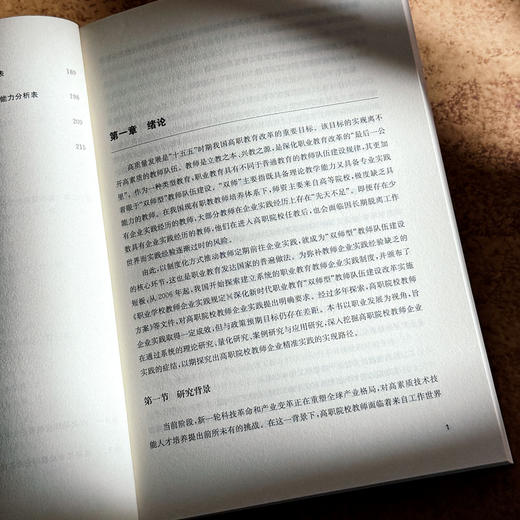 表
189
能力分析表
198
209
215
第一章 绪论
高质量发展是“十五五”时期我国高职教育改革的重要目标。该目标的实现离不
开高素质的教师队伍。教师是立教之本、兴教之源，是深化职业教育改革的“最后一公
里”。作为一种类型教育，职业教育具有不同于普通教育的教师队伍建设规律，其更加
着眼于“双师型”教师队伍建设。“双师”主要指既具备理论教学能力又具备专业实践
能力的教师。在我国现有职教教师培养体系下，师资主要来自高等院校，极度缺乏具
有企业实践经历的教师，大部分教师在企业实践经历上存在“先天不足”。即便存在少
数具有企业实践经历的教师，他们在进入高职院校任教后，也会面临因长期脱离工作
世界而当实践经验逐渐过时的风险。
由此，以制度化方式推动教师定期前往企业实践，就成为“双师型”教师队伍建设
的核心环节，这也是职业教育发达国家的普遍做法。为弥补教师企业实践经验缺乏的
短板，从2006年起，我国开始探索建立系统的职业教育教师企业实践制度，并颁布了
《职业学校教师企业实践规定》《深化新时代职业教育“双师型”教师队伍建设改革实施
方案》等文件，对高职院校教师企业实践提出明确要求。经过多年探索，高职院校教师
企业实践取得一定成效，但与政策预期目标仍存在差距。本书以职业发展为视角，旨
在通过系统的理论研究、量化研究、案例研究与应用研究，深入挖掘高职院校教师企业
实践的症结，以期探究出高职院校教师企业精准实践的实现路径。
第一节 研究背景
当前阶段，新一轮科技革命和产业变革正在重塑全球产业格局，对高素质技术技
能人才培养提出前所未有的挑战。在这一背景下，高职院校教师面临着来自工作世界
1